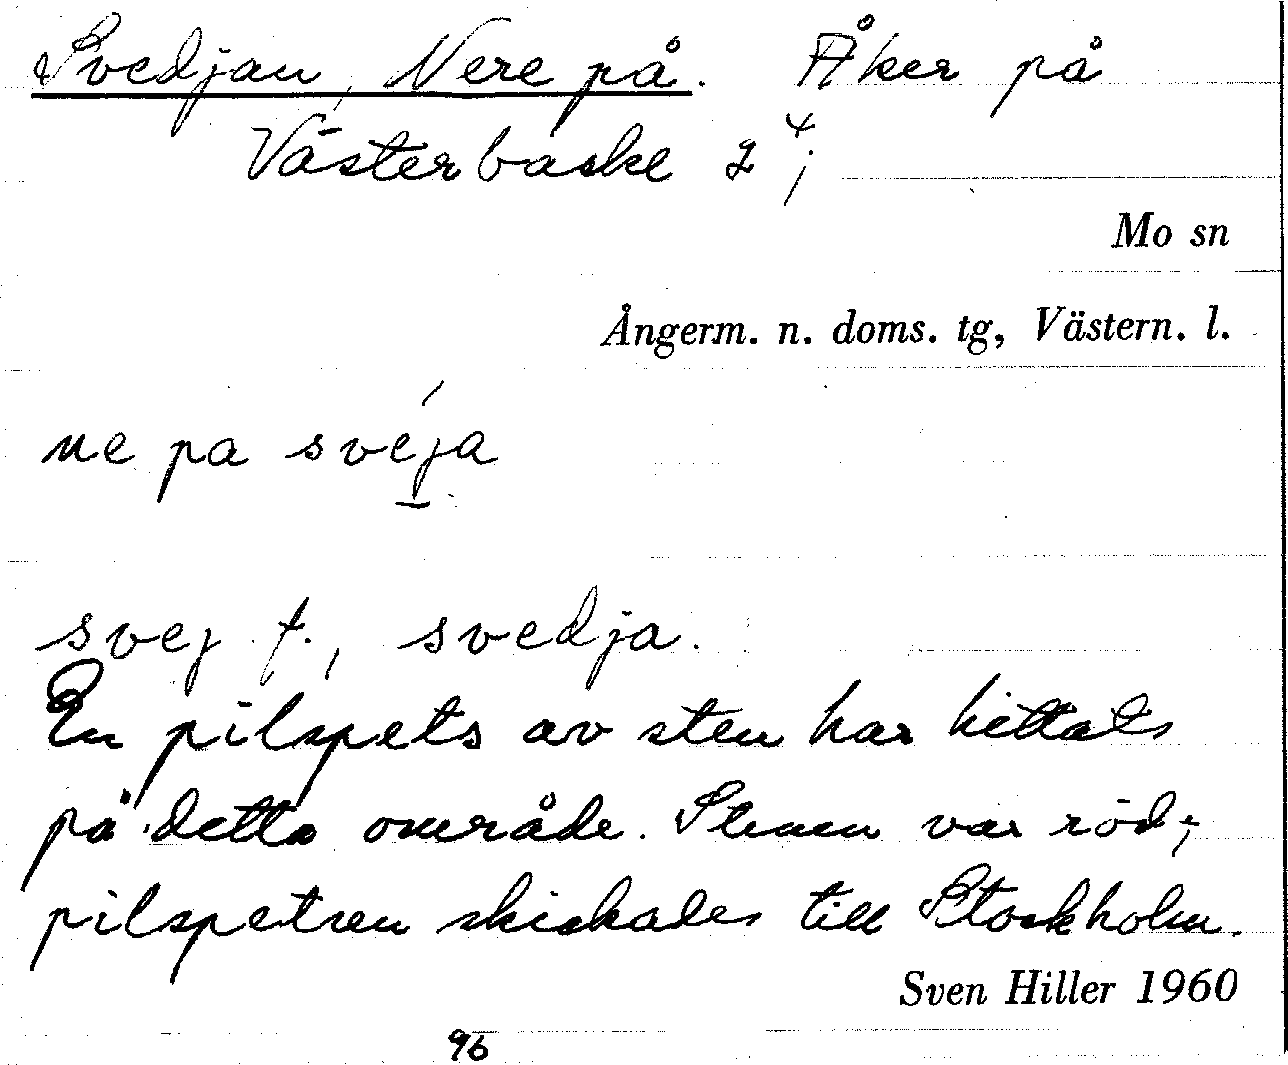 Svedjan, Nere på. Åker på
Västerbaske 2⁴;
Mo sn
Ångerm. n. doms. tg, Västern. l.
ne pa sveja
svej f., svedja.
En pilspets av sten har hittats
på detta område. Stenen var röd;
pilspetsen skickades till Stockholm.
Sven Hiller 1960
96